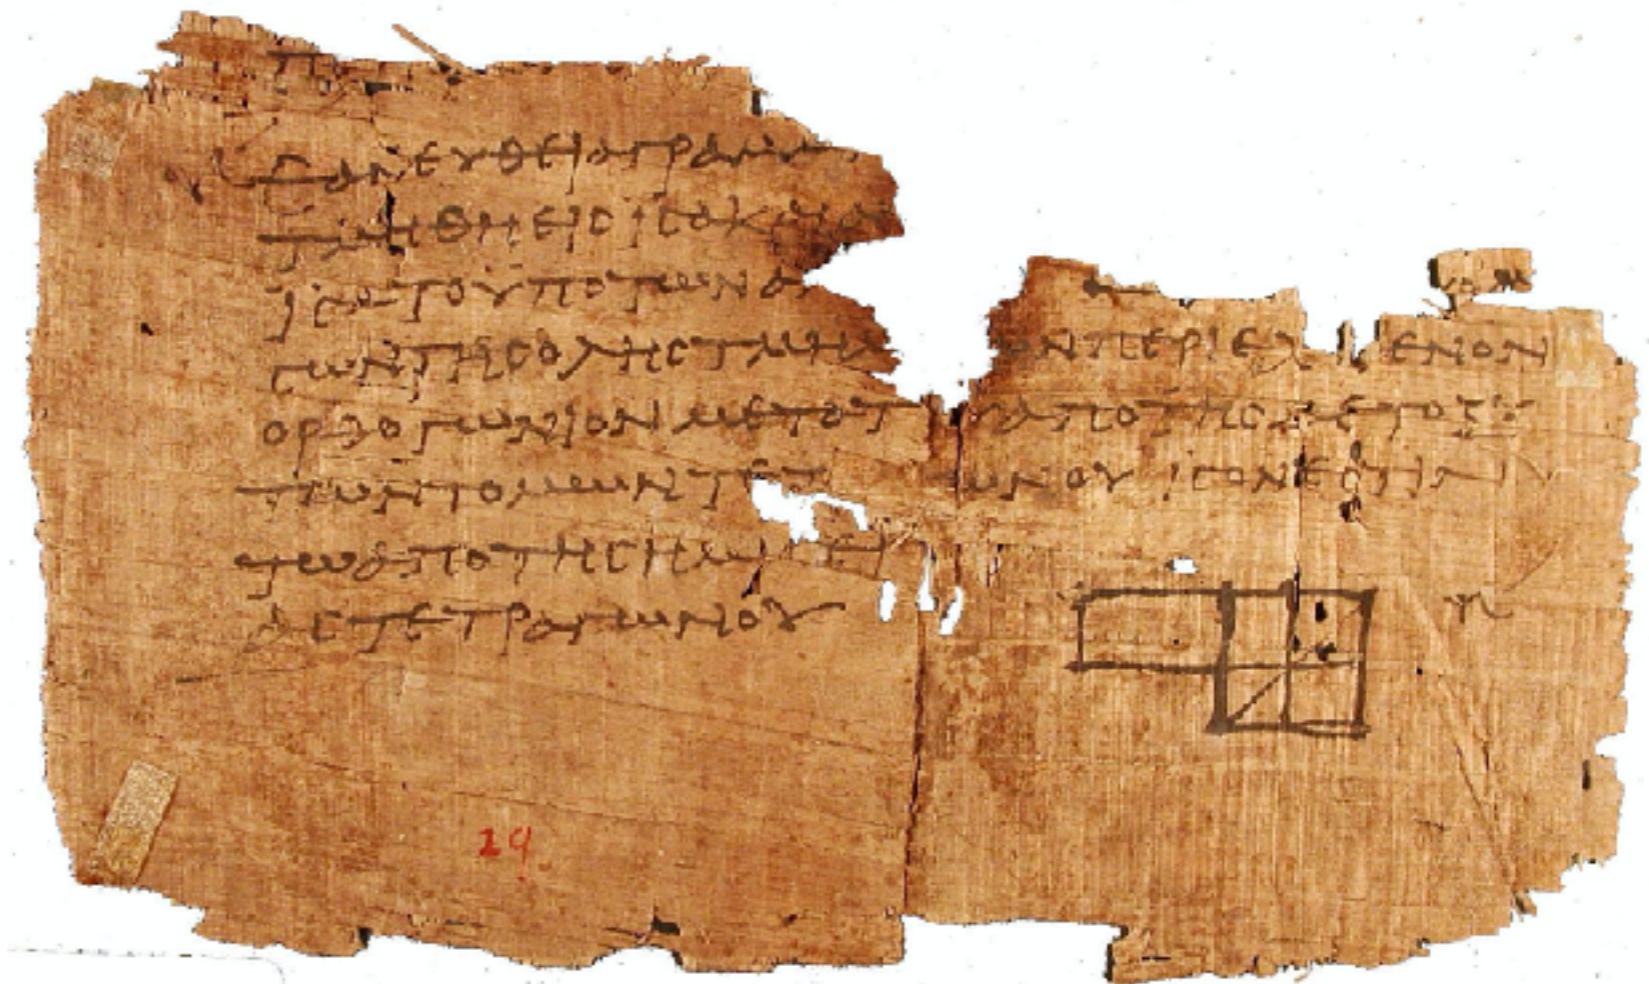 ΕΑΝ ΕΥΘΕΙΑ ΓΡΑΜΜ
ΤΜΗΘΗ ΕΙϹ ΙϹΑ ΚΑΙ Α
ΙϹΑ ΤΟ ΥΠΟ ΤΩΝ ΑΝ
ϹΩΝ ΤΗϹ ΟΛΗϹ ΤΜΗΜ ΩΝ ΠΕΡΙΕΧ ΜΕΝΟΝ
ΟΡΘΟΓΩΝΙΟΝ ΜΕΤΑ Τ Υ ΑΠΟ ΤΗϹ ΜΕΤΑΞΥ
ΤΩΝ ΤΟΜΩΝ ΤΕΤ ΩΝΟΥ ΙϹΟΝ ΕϹΤΙΝ
ΤΩ ΑΠΟ ΤΗϹ ΗΜΙϹΕΙ
ΑϹ ΤΕΤΡΑΓΩΝΟΥ
29